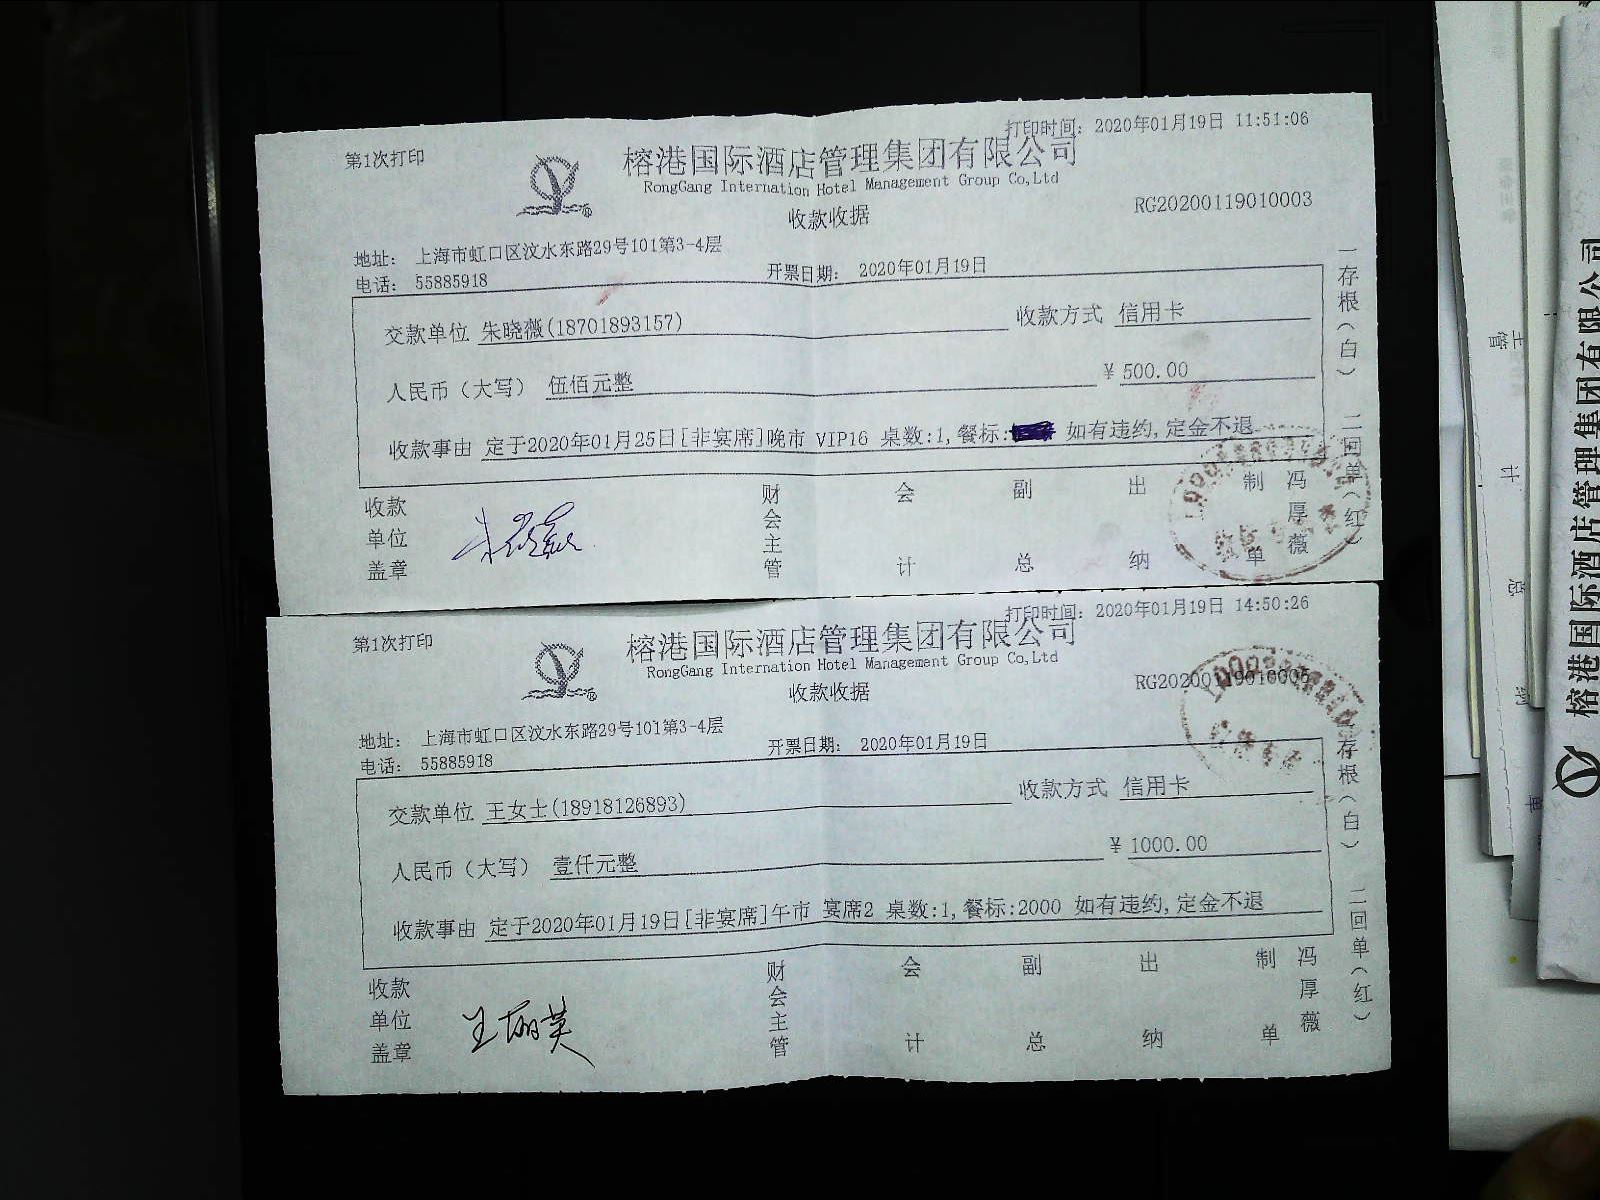 打印时间: 2020年01月19日 11:51:06
第1次打印
榕港国际酒店管理集团有限公司
RongGang Internation Hotel Management Group Co,Ltd
RG20200119010003
收款收据
地址: 上海市虹口区汶水东路29号101第3-4层
电话: 55885918
开票日期: 2020年01月19日
交款单位 朱晓薇(18701893157) 收款方式 信用卡
人民币(大写) 伍佰元整 ¥500.00
收款事由 定于2020年01月25日[非宴席]晚市 VIP16 桌数:1,餐标: 如有违约,定金不退
收款单位盖章 财会主管 会计 副总 出纳 制单 冯厚薇
一存根(白) 二回单(红)
打印时间: 2020年01月19日 14:50:26
第1次打印
榕港国际酒店管理集团有限公司
RongGang Internation Hotel Management Group Co,Ltd
收款收据
地址: 上海市虹口区汶水东路29号101第3-4层
电话: 55885918
开票日期: 2020年01月19日
交款单位 王女士(18918126893) 收款方式 信用卡
人民币(大写) 壹仟元整 ¥1000.00
收款事由 定于2020年01月19日[非宴席]午市 宴席2 桌数:1,餐标:2000 如有违约,定金不退
收款单位盖章 王丽英 财会主管 会计 副总 出纳 制单 冯厚薇
存根(白) 二回单(红)
榕港国际酒店管理集团有限公司
主管
计
总
单